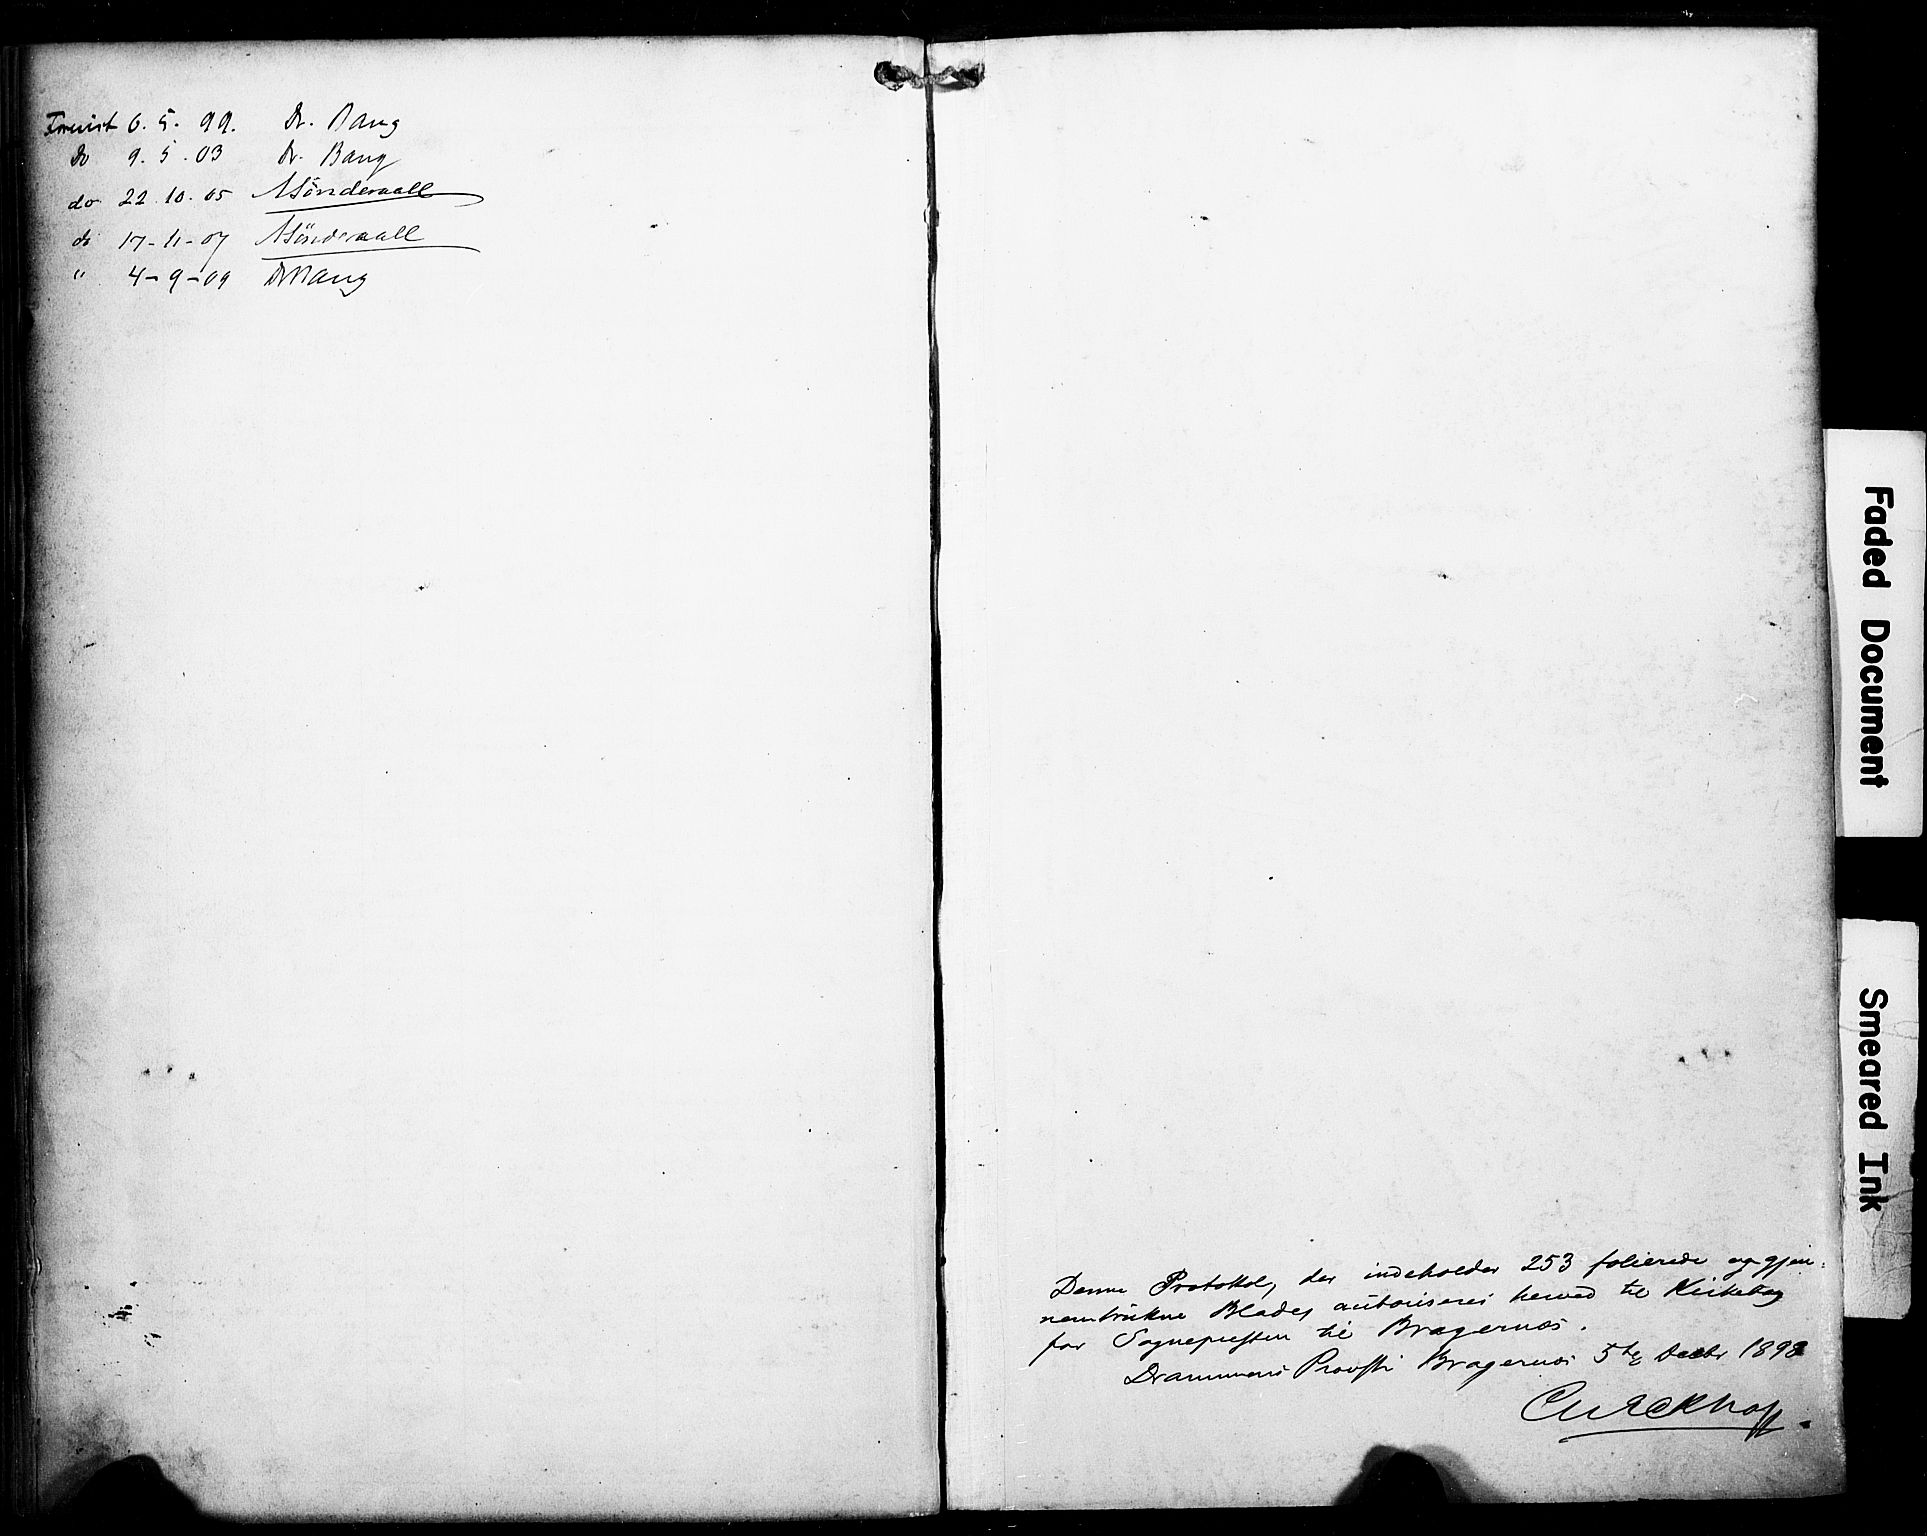 Forevist 6. 5. 99. Dr. Bang
Do 9. 5. 03 Dr. Bang
do 22. 10. 05
do 17-11-07
" 4-9-09 Dr Bang
Denne Protokol, der indeholder 253 folierede og gjen-
nemtrukne Blade, autoriseres herved til Kirkebog
for Sognepresten til Bragernæs.
Drammens Provsti Bragernæs 5te Decbr 1898
Faded Document
Smeared Ink